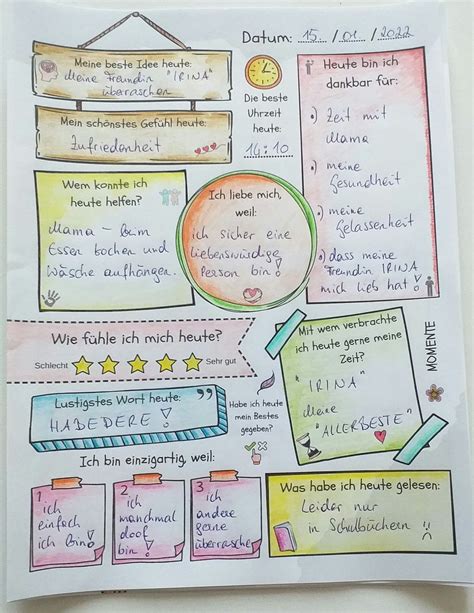 Datum: 15 / 01 / 2022
Meine beste Idee heute:
Meine Freundin "IRINA"
überraschen
Mein schönstes Gefühl heute:
Zufriedenheit
Die beste
Uhrzeit
heute:
14:10
Heute bin ich
dankbar für:
.) Zeit mit
Mama
.) meine
Gesundheit
.) meine
Gelassenheit
.) dass meine
Freundin IRINA
mich lieb hat!
Wem konnte ich
heute helfen?
Mama - beim
Essen kochen und
Wäsche aufhängen.
Ich liebe mich,
weil:
ich sicher eine
liebenswürdige
Person bin!
Wie fühle ich mich heute?
Schlecht
Sehr gut
Mit wem verbrachte
ich heute gerne meine
Zeit?
"IRINA"
meine
"ALLERBESTE"
MOMENTE
Lustigstes Wort heute:
HABEDERE!
Habe ich heute
mein Bestes
gegeben?
Ich bin einzigartig, weil:
1. ich
einfach
ich bin!
2. ich
manchmal
doof
bin!
3. ich
andere
gerne
überrasche
Was habe ich heute gelesen:
Leider nur
in Schulbüchern